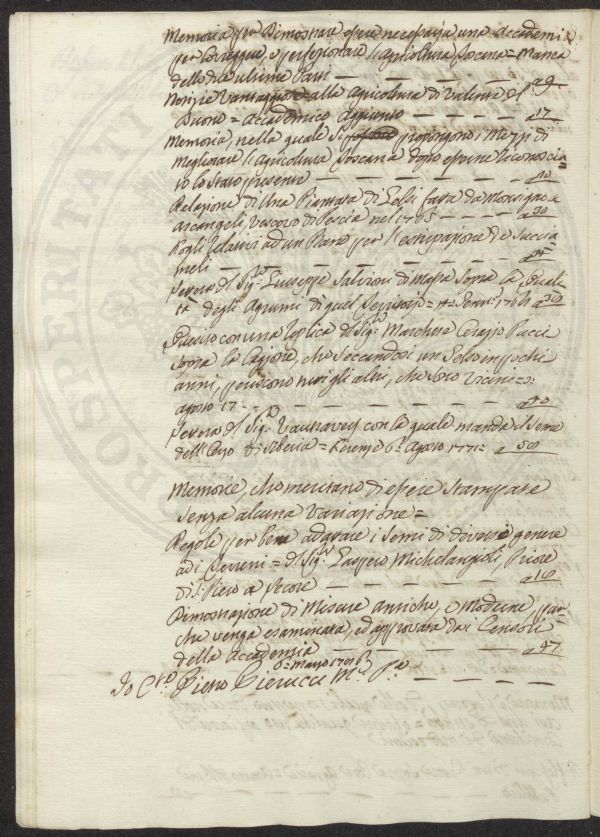 Memoria per Dimostrare essere necessaria una Accademia
per Coreggere, e perfezionare l'Agricoltura Toscana = Manca
delle due ultime Parti — — — — — a 9
Notizie Vantaggiose alla Agricoltura di Valente del
Buono = Accademico Aggiunto — — — — a 17
Memoria, nella quale si propongono i Mezzi di
Megliorare l'Agricoltura Toscana dopo essere
lo Stato presente — — — — — a 10
Relazione di Una Piantata di Gelsi fatta da Monsignore
Arcangeli Vescovo di Pescia nel 1765 — — — — a 30
Fogli relativi ad un Piano per l'estirpazione de Succia
meli — — — — — — —
Lettera del Sig.r Giuseppe Salvioni di Massa Sopra la Quali
tà degli Agrumi di quel Territorio = 1764 a
con una Replica del Sig.r Marchese Pucci
Sopra la Cagione, che Seccandosi un Gelso in pochi
anni, periscono tutti gli altri, che sono Vicini =
Agosto 17 — — — — — —
Lettera del Sig.r con la quale manda il Seme
dell'Orzo di Siberia = Firenze 6 Agosto 1771 = a 50
Memorie, che meritano di essere Stampate
Senza alcuna Variazione =
Regole per bene adattare i Semi di diverso genere
ad i Terreni = del Sig.r Michelangioli, Priore
di S. Piero a — — — — — a 16
Dimostrazione di Misure Antiche, e Moderne, pur
che venga esaminata, ed approvata dai Censori
della Accademia — — — — — a 47
6 Marzo
Io Piero Pierucci